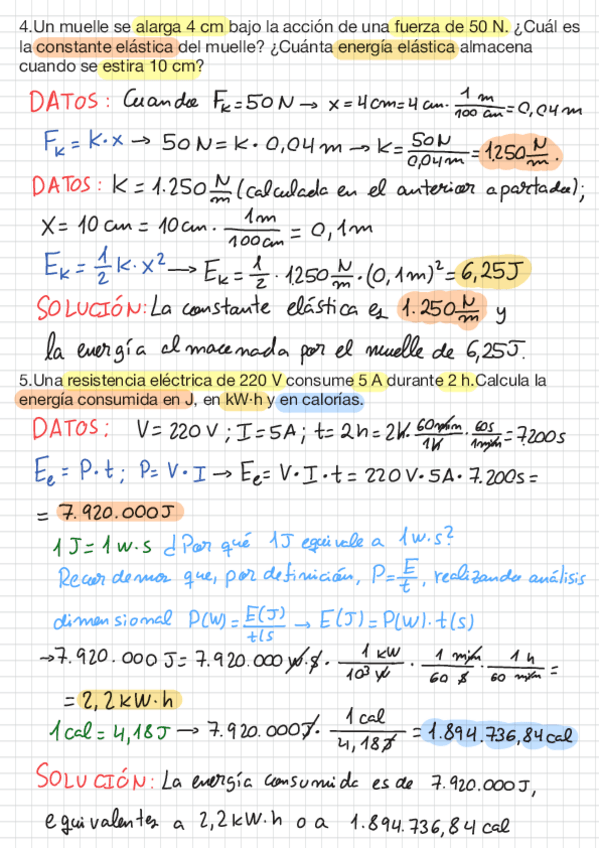 4.Un muelle se alarga 4 cm bajo la acción de una fuerza de 50 N. ¿Cuál es
la constante elástica del muelle? ¿Cuánta energía elástica almacena
cuando se estira 10 cm?
DATOS: Cuando Fₖ=50N → x=4cm=4cm · 1m/100cm = 0,04m
Fₖ = K·x → 50N = K · 0,04m → K = 50N/0,04m = 1250 N/m.
DATOS: K = 1.250 N/m (calculada en el anterior apartado);
X = 10 cm = 10cm · 1m/100cm = 0,1m
Eₖ = 1/2 K·x² → Eₖ = 1/2 · 1250 N/m · (0,1m)² = 6,25J
SOLUCIÓN: La constante elástica es 1.250 N/m y
la energía almacenada por el muelle de 6,25J.
5.Una resistencia eléctrica de 220 V consume 5 A durante 2 h.Calcula la
energía consumida en J, en kW·h y en calorías.
DATOS: V = 220V ; I = 5A ; t = 2h = 2h · 60min/1h · 60s/1min = 7200s
Eₑ = P·t ; P = V·I → Eₑ = V·I·t = 220V·5A·7.200s =
= 7.920.000J
1J = 1w·s ¿Por qué 1J equivale a 1w·s?
Recordemos que, por definición, P = E/t, realizando análisis
dimensional P(W) = E(J)/t(s → E(J) = P(W)·t(s)
→7.920.000J = 7.920.000 w·s · 1 kW/10³ w · 1 min/60 s · 1 h/60 min =
= 2,2kW·h
1cal = 4,18J → 7.920.000J · 1 cal/4,18J = 1.894.736,84cal
SOLUCIÓN: La energía consumida es de 7.920.000J,
equivalentes a 2,2kW·h o a 1.894.736,84 cal